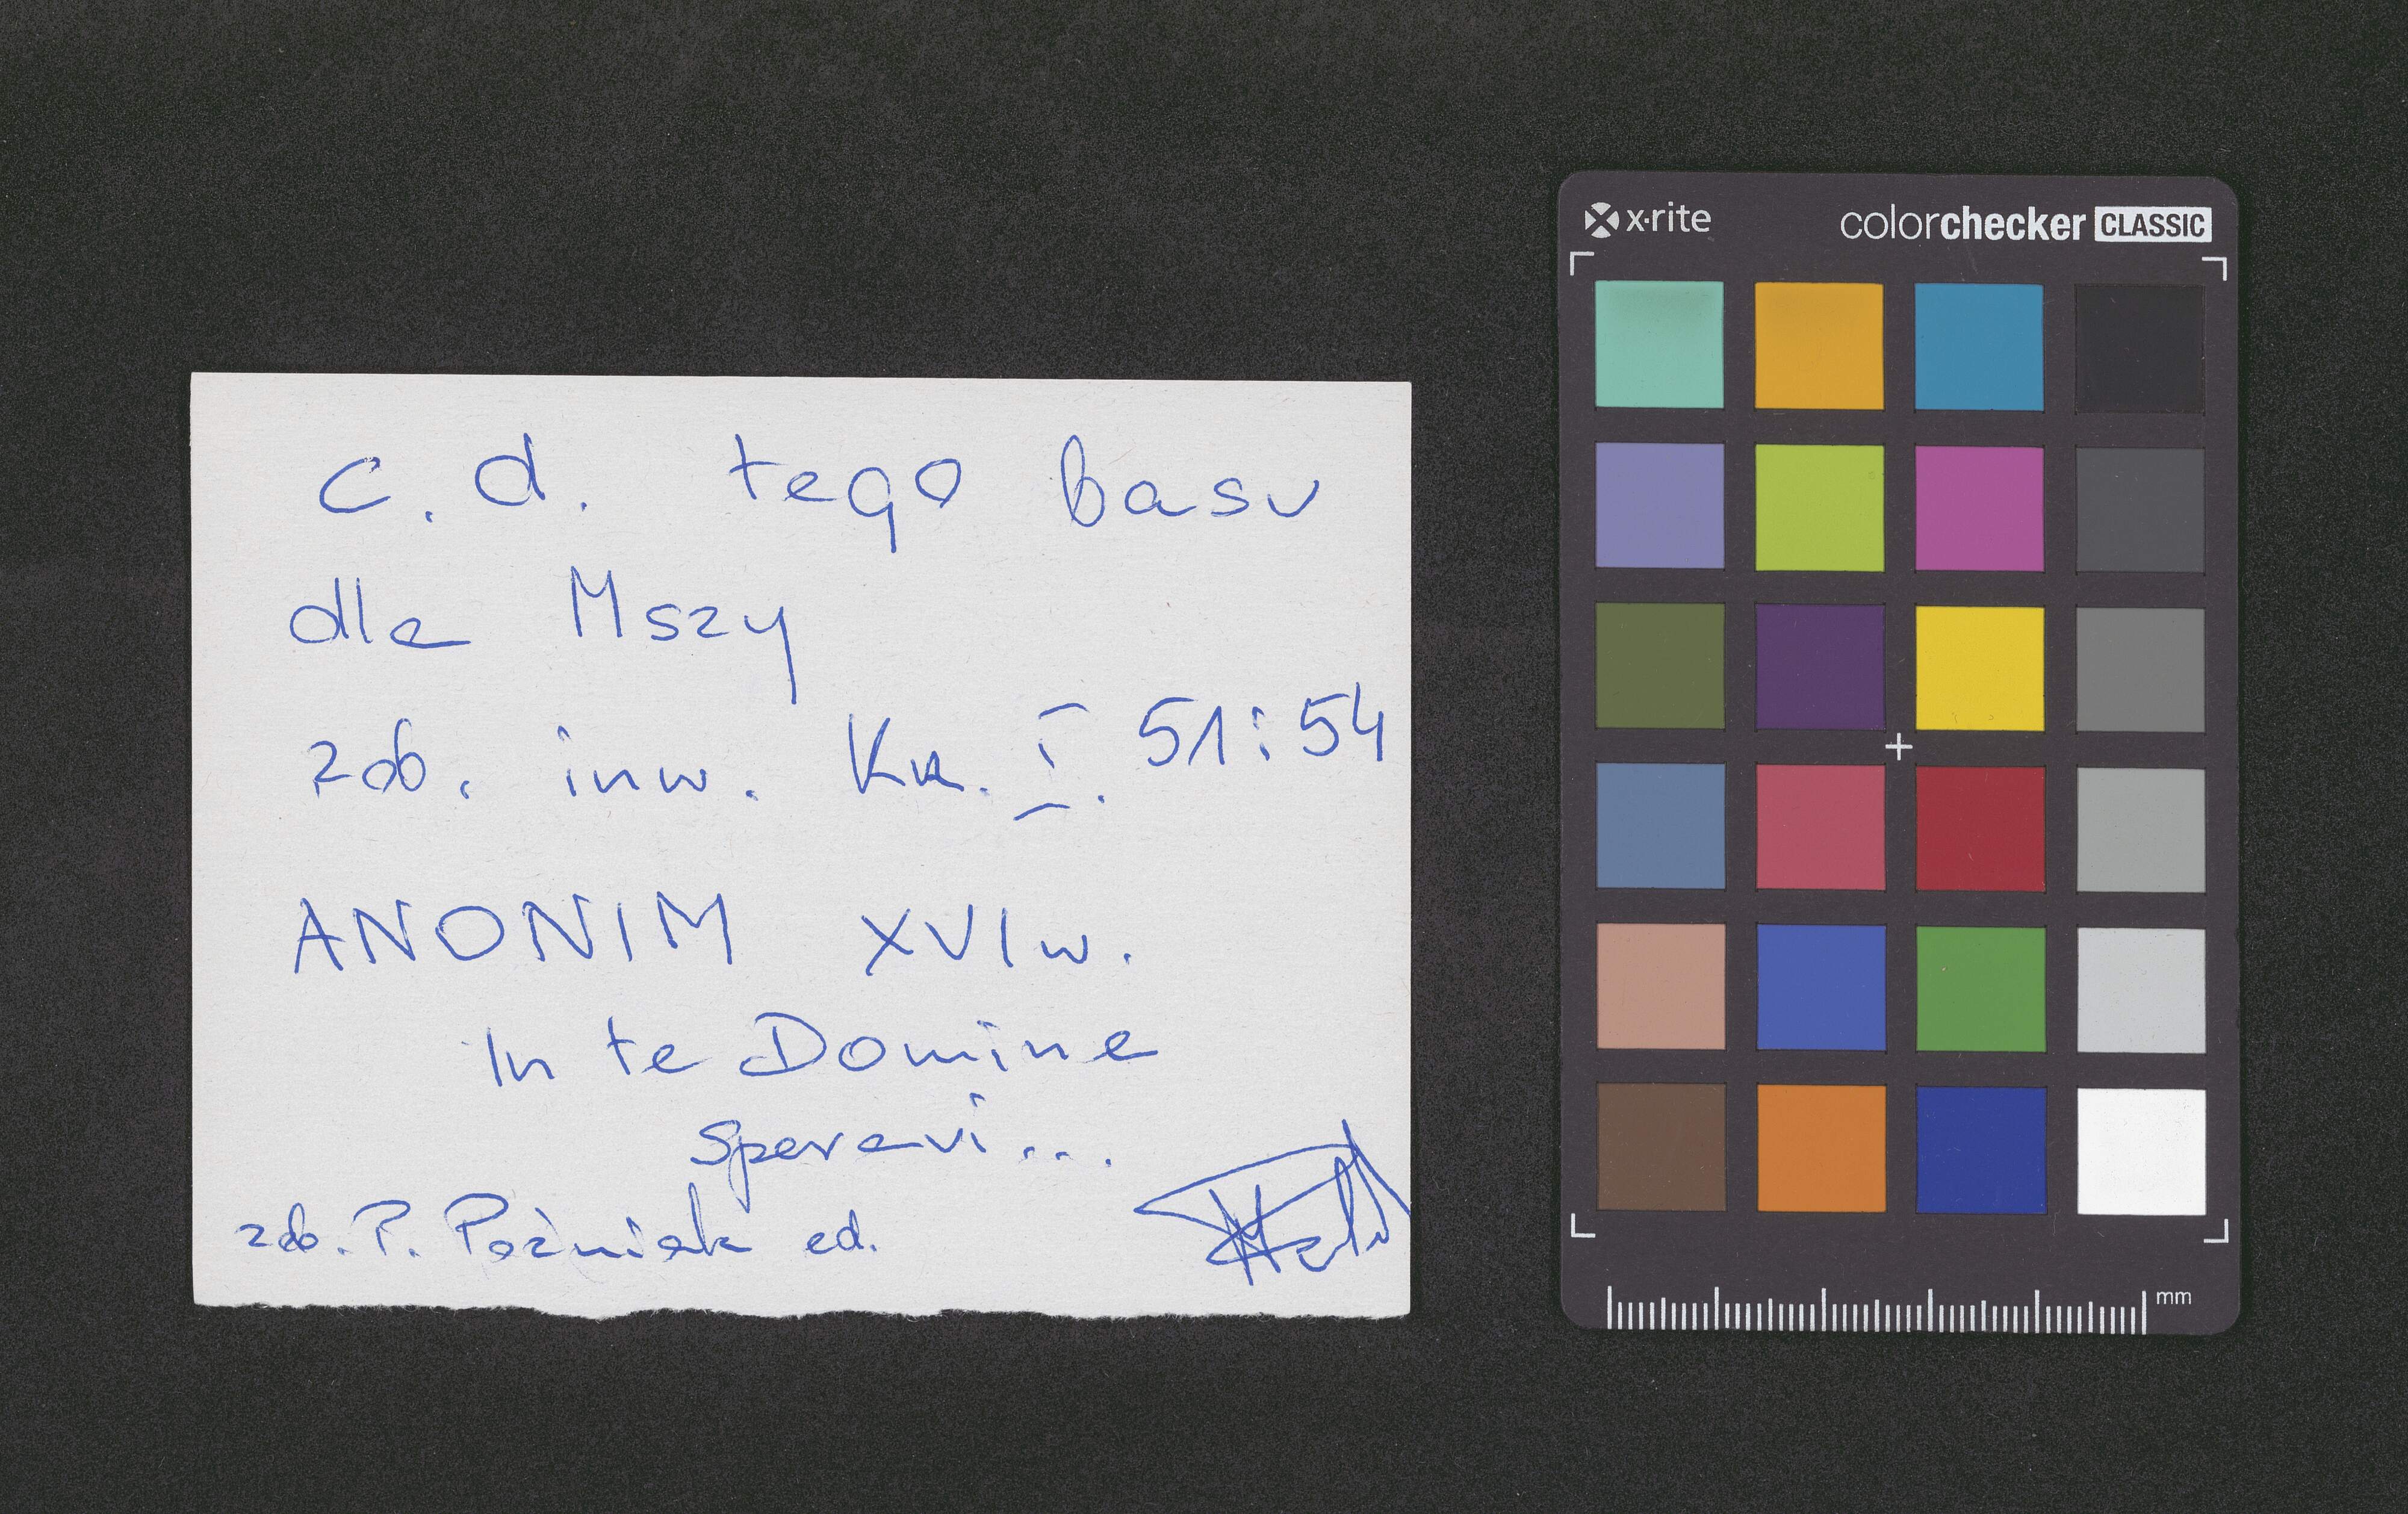 c. d. tego basu
dla Mszy
zob. inw. Kk. I. 51 i 54
ANONIM XVI w.
In te Domine
speravi...
zob. P. Poźniak ed.
x·rite
colorchecker CLASSIC
mm